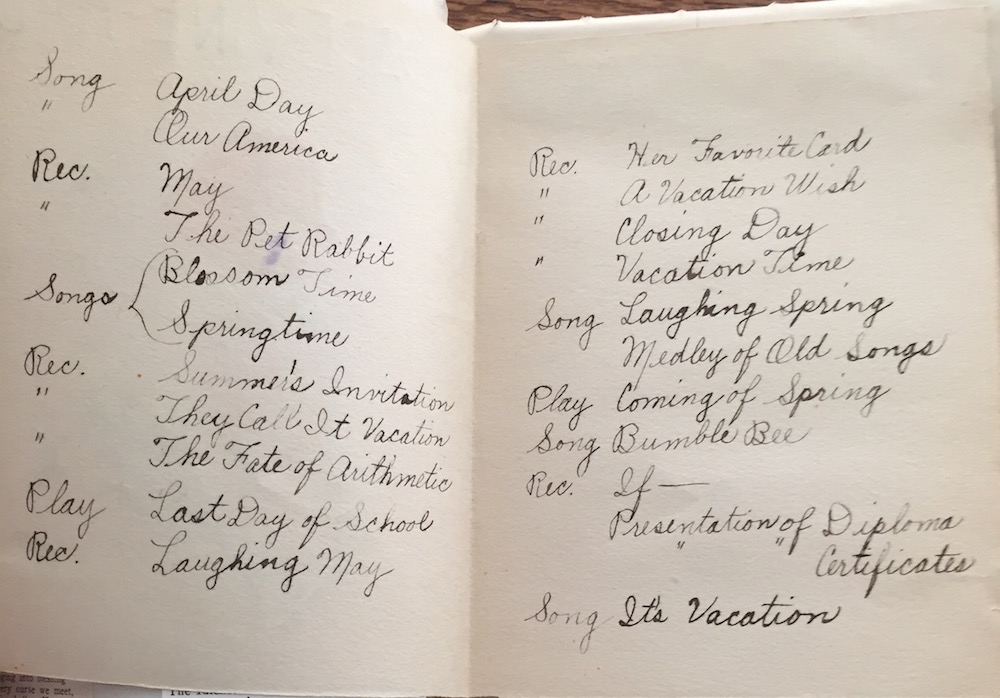 Song April Day
" Our America
Rec. May
" The Pet Rabbit
Songs { Blossom Time
Springtime
Rec. Summer's Invitation
" They Call It Vacation
" The Fate of Arithmetic
Play Last Day of School
Rec. Laughing May
Rec. Her Favorite Card
" A Vacation Wish
" Closing Day
" Vacation Time
Song Laughing Spring
Medley of Old Songs
Play Coming of Spring
Song Bumble Bee
Rec. If —
Presentation of Diploma
" " Certificates
Song It's Vacation
ery curse we meet,